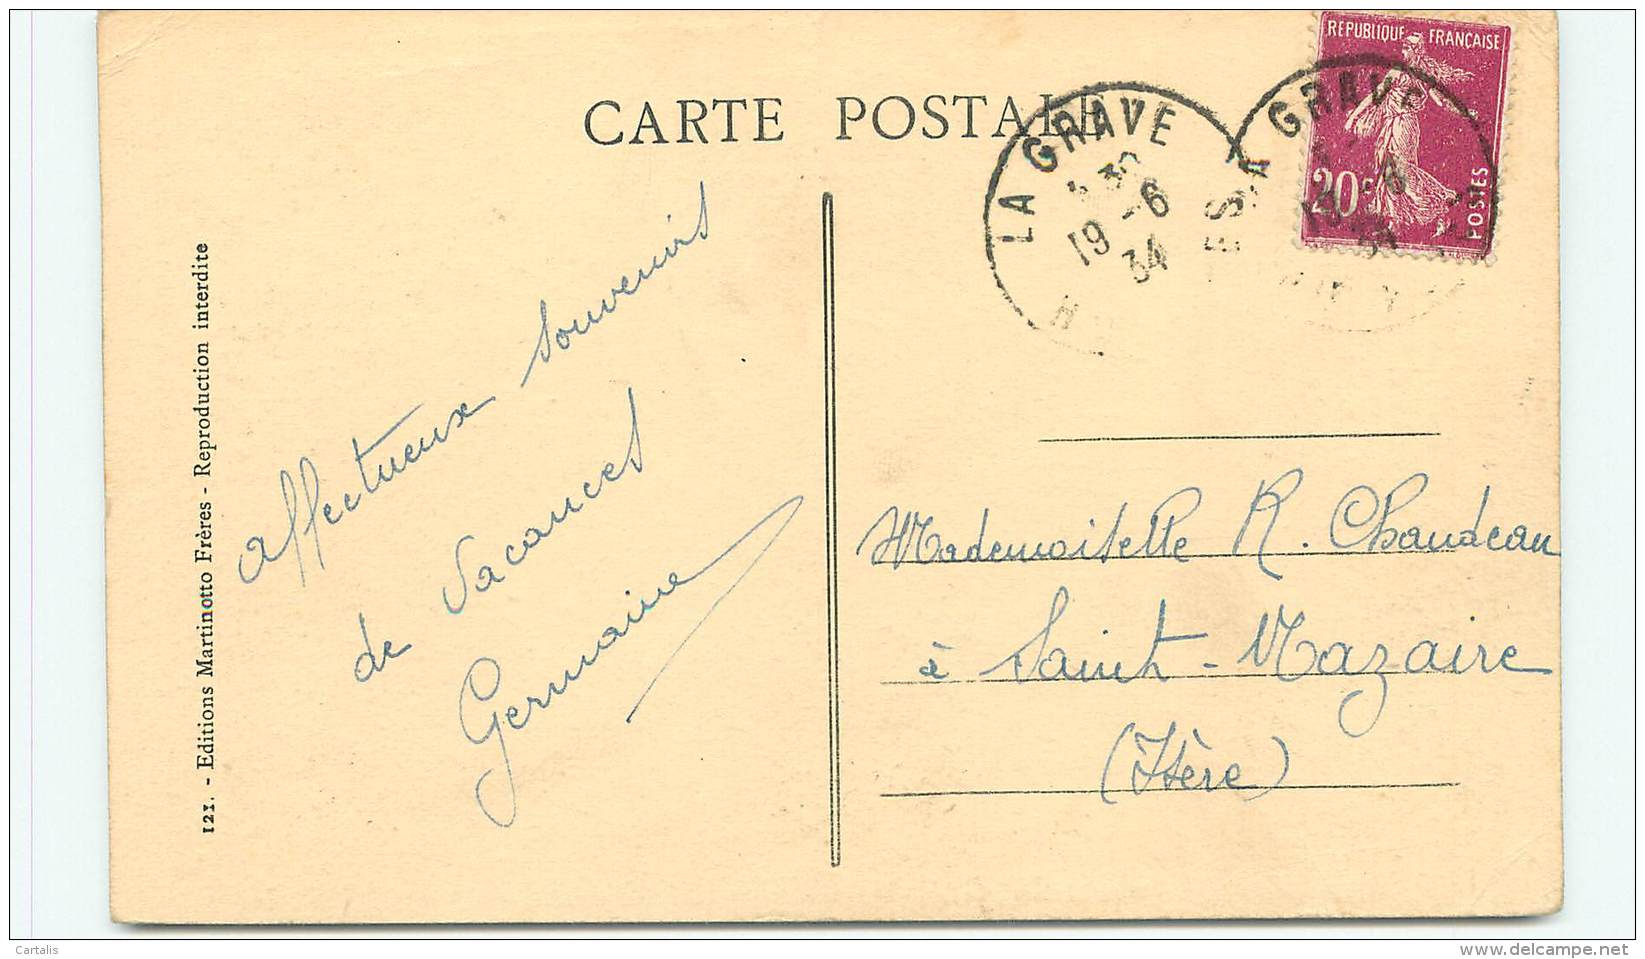 CARTE POSTALE
REPUBLIQUE FRANÇAISE
20c
POSTES
LA GRAVE
19 -6
34
GRAVE
affectueux souvenirs
de vacances
Germaine
Mademoiselle R. Chaudeau
à Saint-Nazaire
(Isère)
121. - Editions Martinotto Frères - Reproduction interdite
Cartalis
www.delcampe.net